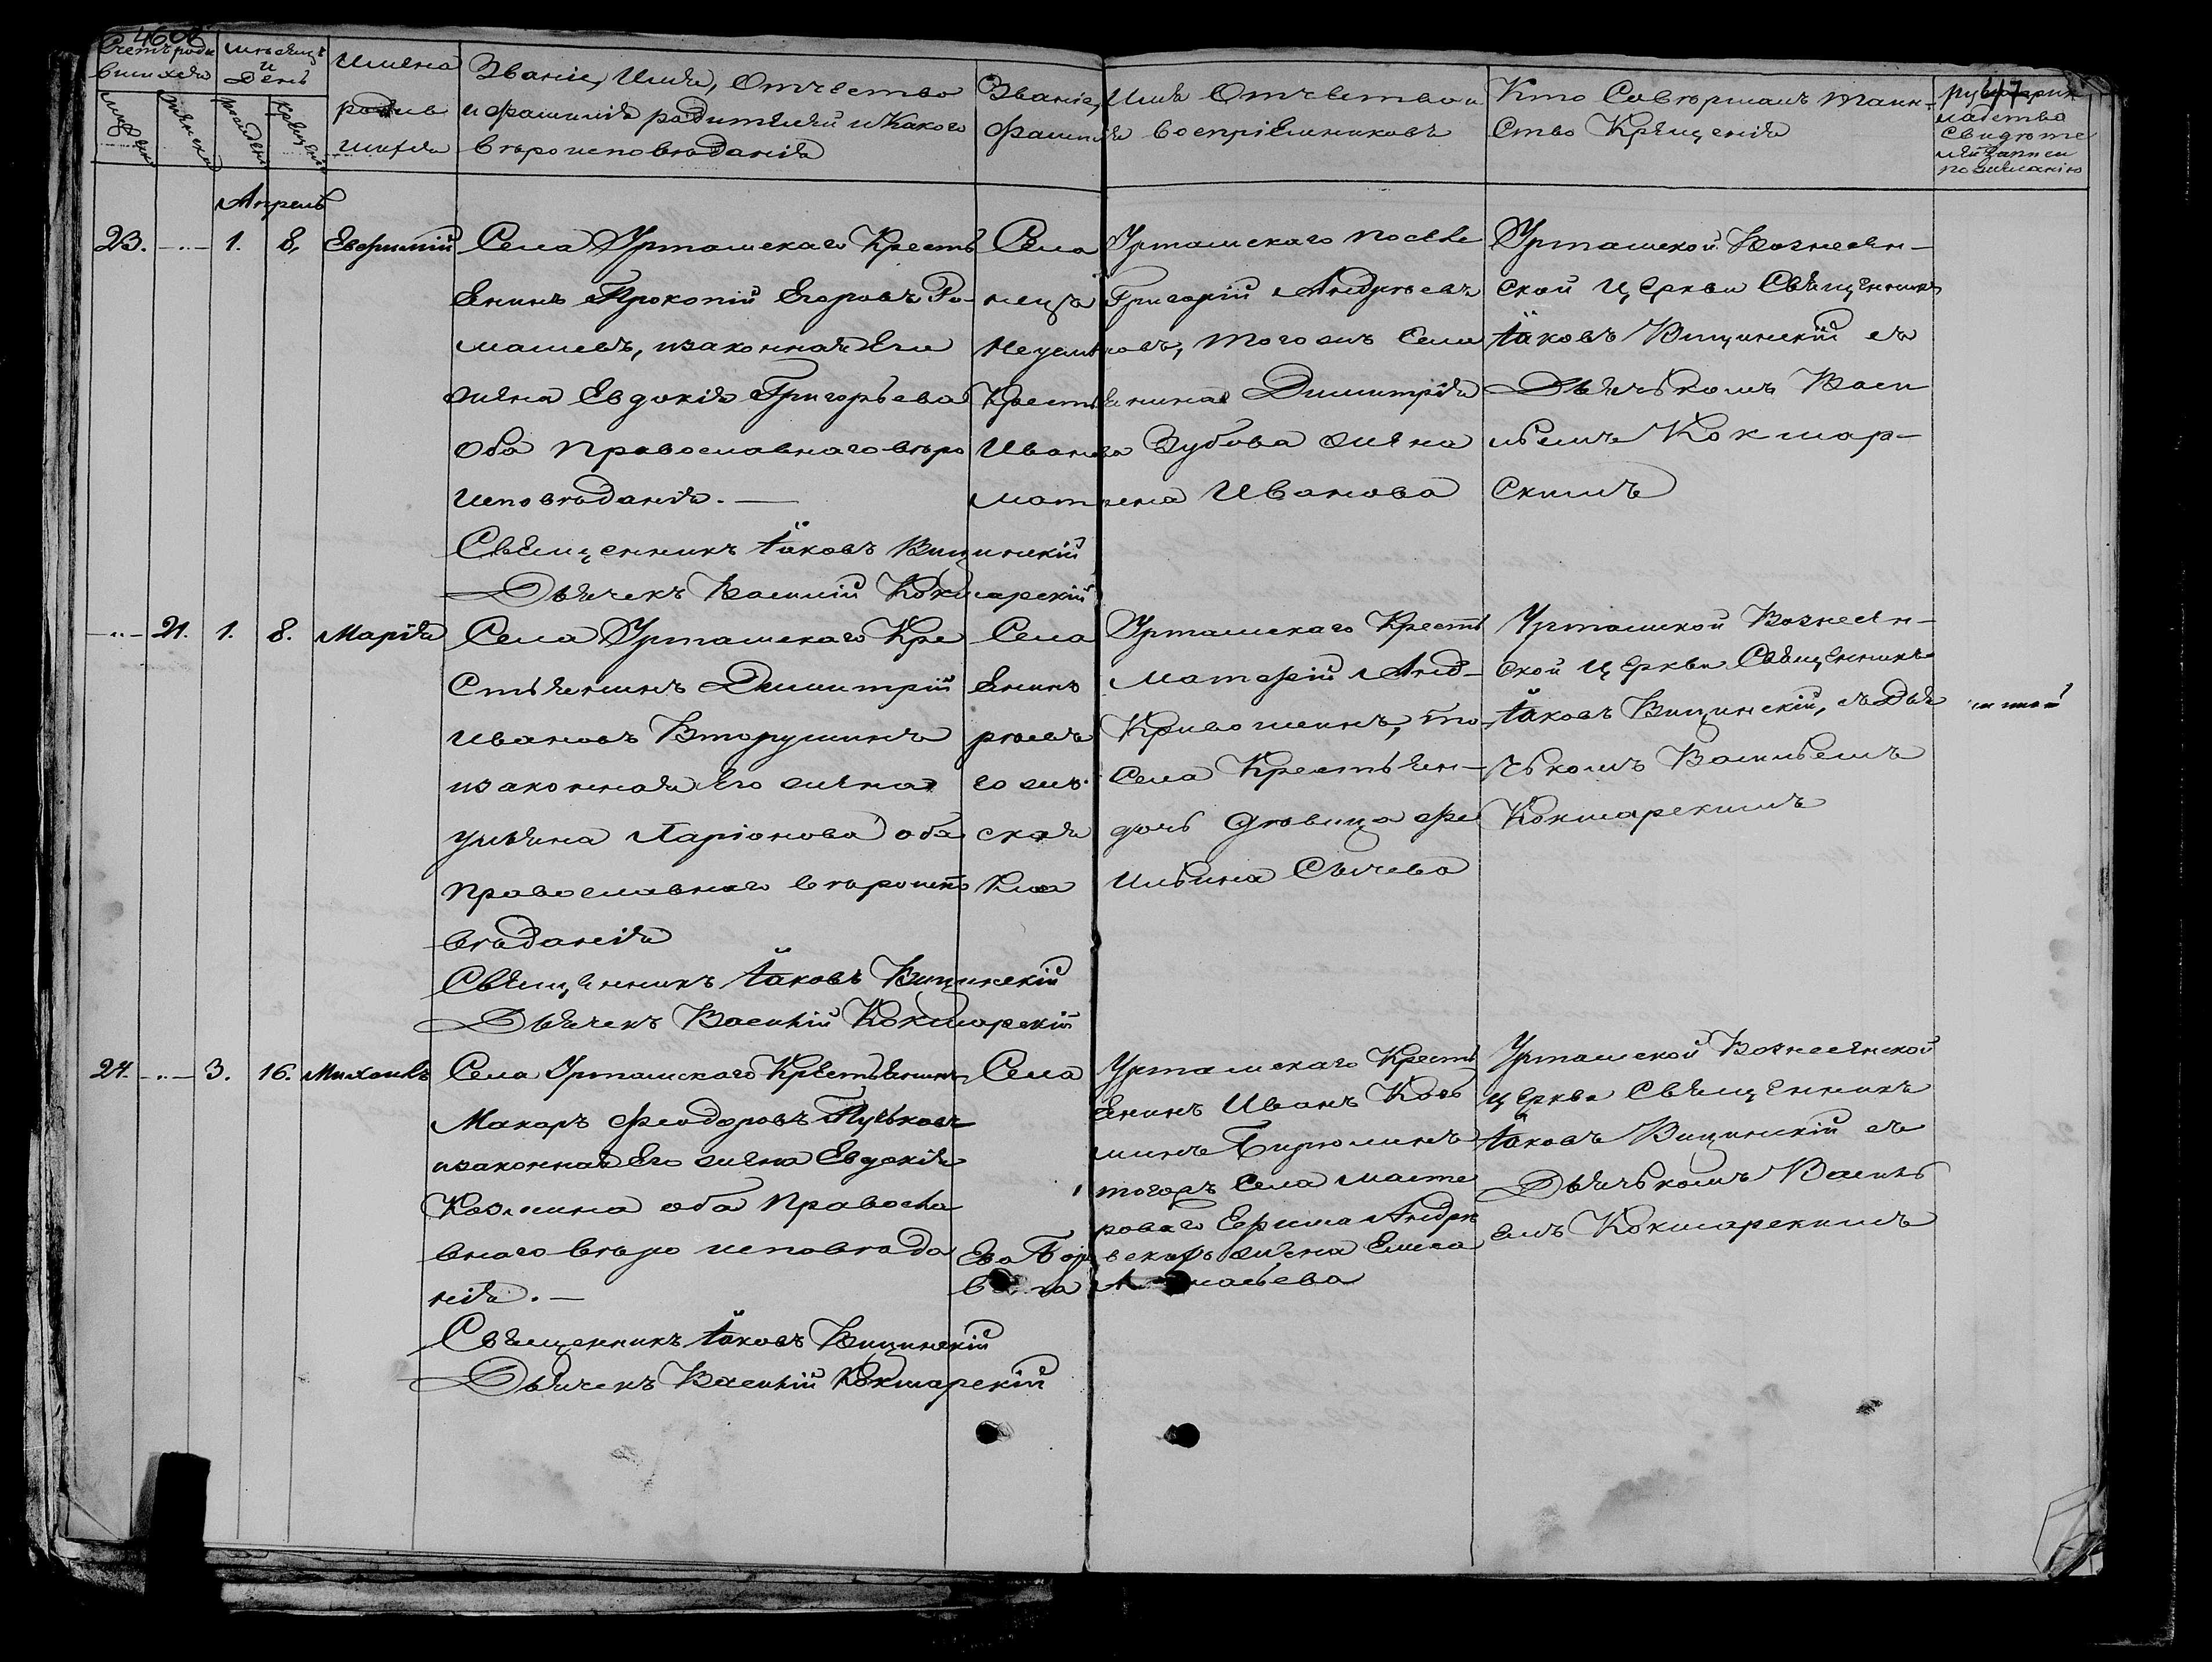 46 об
Счетъ роди
вшихся
Мѣсяцъ
и
День
Имена
родив
шихся
Званіе, Имя, Отчество
и Фамилія родителей и Какого
вѣроисповѣданія
Званіе, Имя Отчество и
Фамилія воспріемниковъ
Кто Совершалъ таин-
Ство Крещенія
47
Апрель
23. 1. 8. Евфимій
Села Урташскаго Кресть
Енинъ Прокопій Егоровъ Ро-
машевъ, изаконная Его
жена Евдокія Григорьева
Оба православнаго вѣро
исповѣданія. —
Священникъ Іаковъ Вишинскій
Дьячекъ Василій Кокшарскій
Села Урташскаго посѣле
нецъ Григорій Андрѣевъ
тогожъ Села
Крестьянина Димитрія
Иванова Зубова жена
Иванова
Урташской Вознесен-
ской церкви Священникъ
Іаковъ Вишинскій съ
Дьячькомъ Васи
льемъ Кокшар-
скимъ
21. 1. 8. Марія
Села Урташскаго Кре
Стьянинъ Димитрій
Ивановъ Вторушинъ
изаконная Его жена
Ульяна Ларіонова оба
православнаго вѣроиспо
вѣданія
Священникъ Іаковъ Вишинскій
Дьячекъ Василій Кокшарскій
Села Урташскаго Кресть
Енинъ Матфей Анд-
рѣевъ Кривошеинъ, то
гожъ Села Крестьян-
ская дочь дѣвица Фе
кла Ильина Сычева
Урташской Вознесен-
ской церкви Священникъ
Іаковъ Вишинскій, съ Дья
чькомъ Васильемъ
Кокшарскимъ
24. 3. 16. Михаилъ
Села Урташскаго Крестьянинъ
Макаръ Феодоровъ Пучковъ
изаконная Его жена Евдокія
Козмина оба Правосла
внаго вѣро исповѣда
нія. —
Священникъ Іаковъ Вишинскій
Дьячекъ Василій Кокшарскій
Села Урташскаго Кресть
Енинъ Иванъ Козь
минъ Бирюлинъ
тогожъ Села масте
роваго Ефима Андрѣ
жена
Урташской Вознесенской
церкви Священникъ
Іаковъ Вишинскій съ
Дьячькомъ Василь
емъ Кокшарскимъ